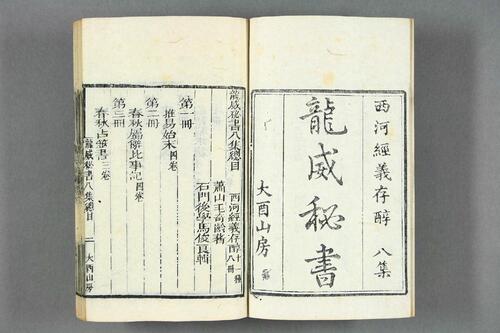 西河經義存醇 八集
龍威秘書
大酉山房
龍威秘書八集總目
西河經義存醇 十種 八冊
蕭山毛奇齡稿
石門後學馬俊良輯
第一冊
推易始末 四卷
第二冊
春秋屬辭比事記 四卷
第三冊
春秋占筮書 三卷
龍威秘書八集總目 一 大酉山房